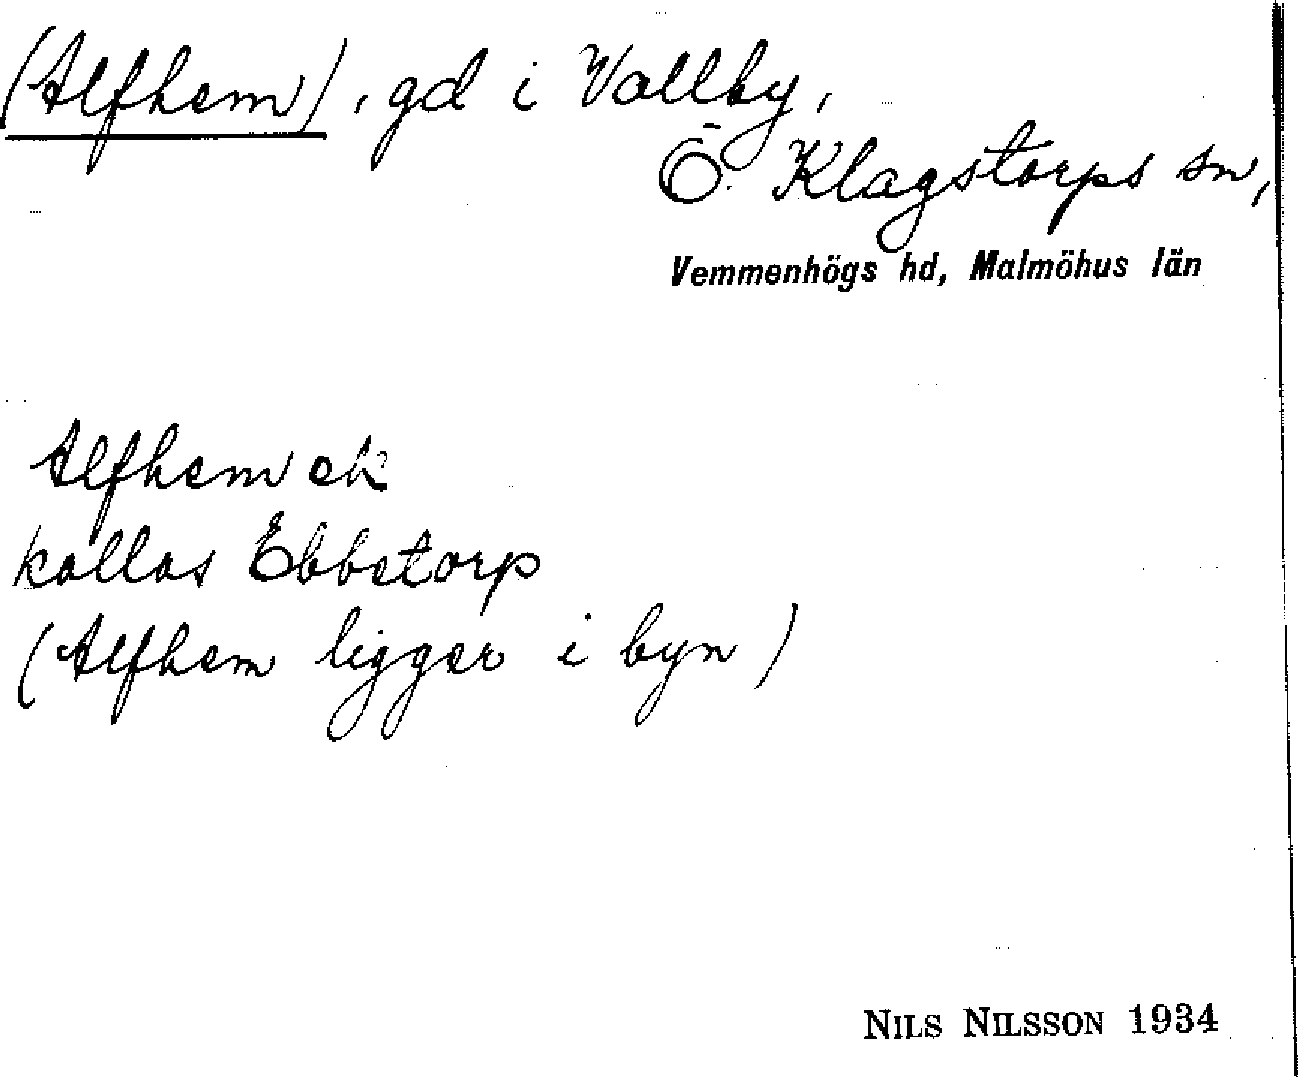 (Alfhem), gd i Vallby,
Ö. Klagstorps sn,
Vemmenhögs hd, Malmöhus län
Alfhem ek
kallas Ebbetorp
(Alfhem ligger i byn)
NILS NILSSON 1934